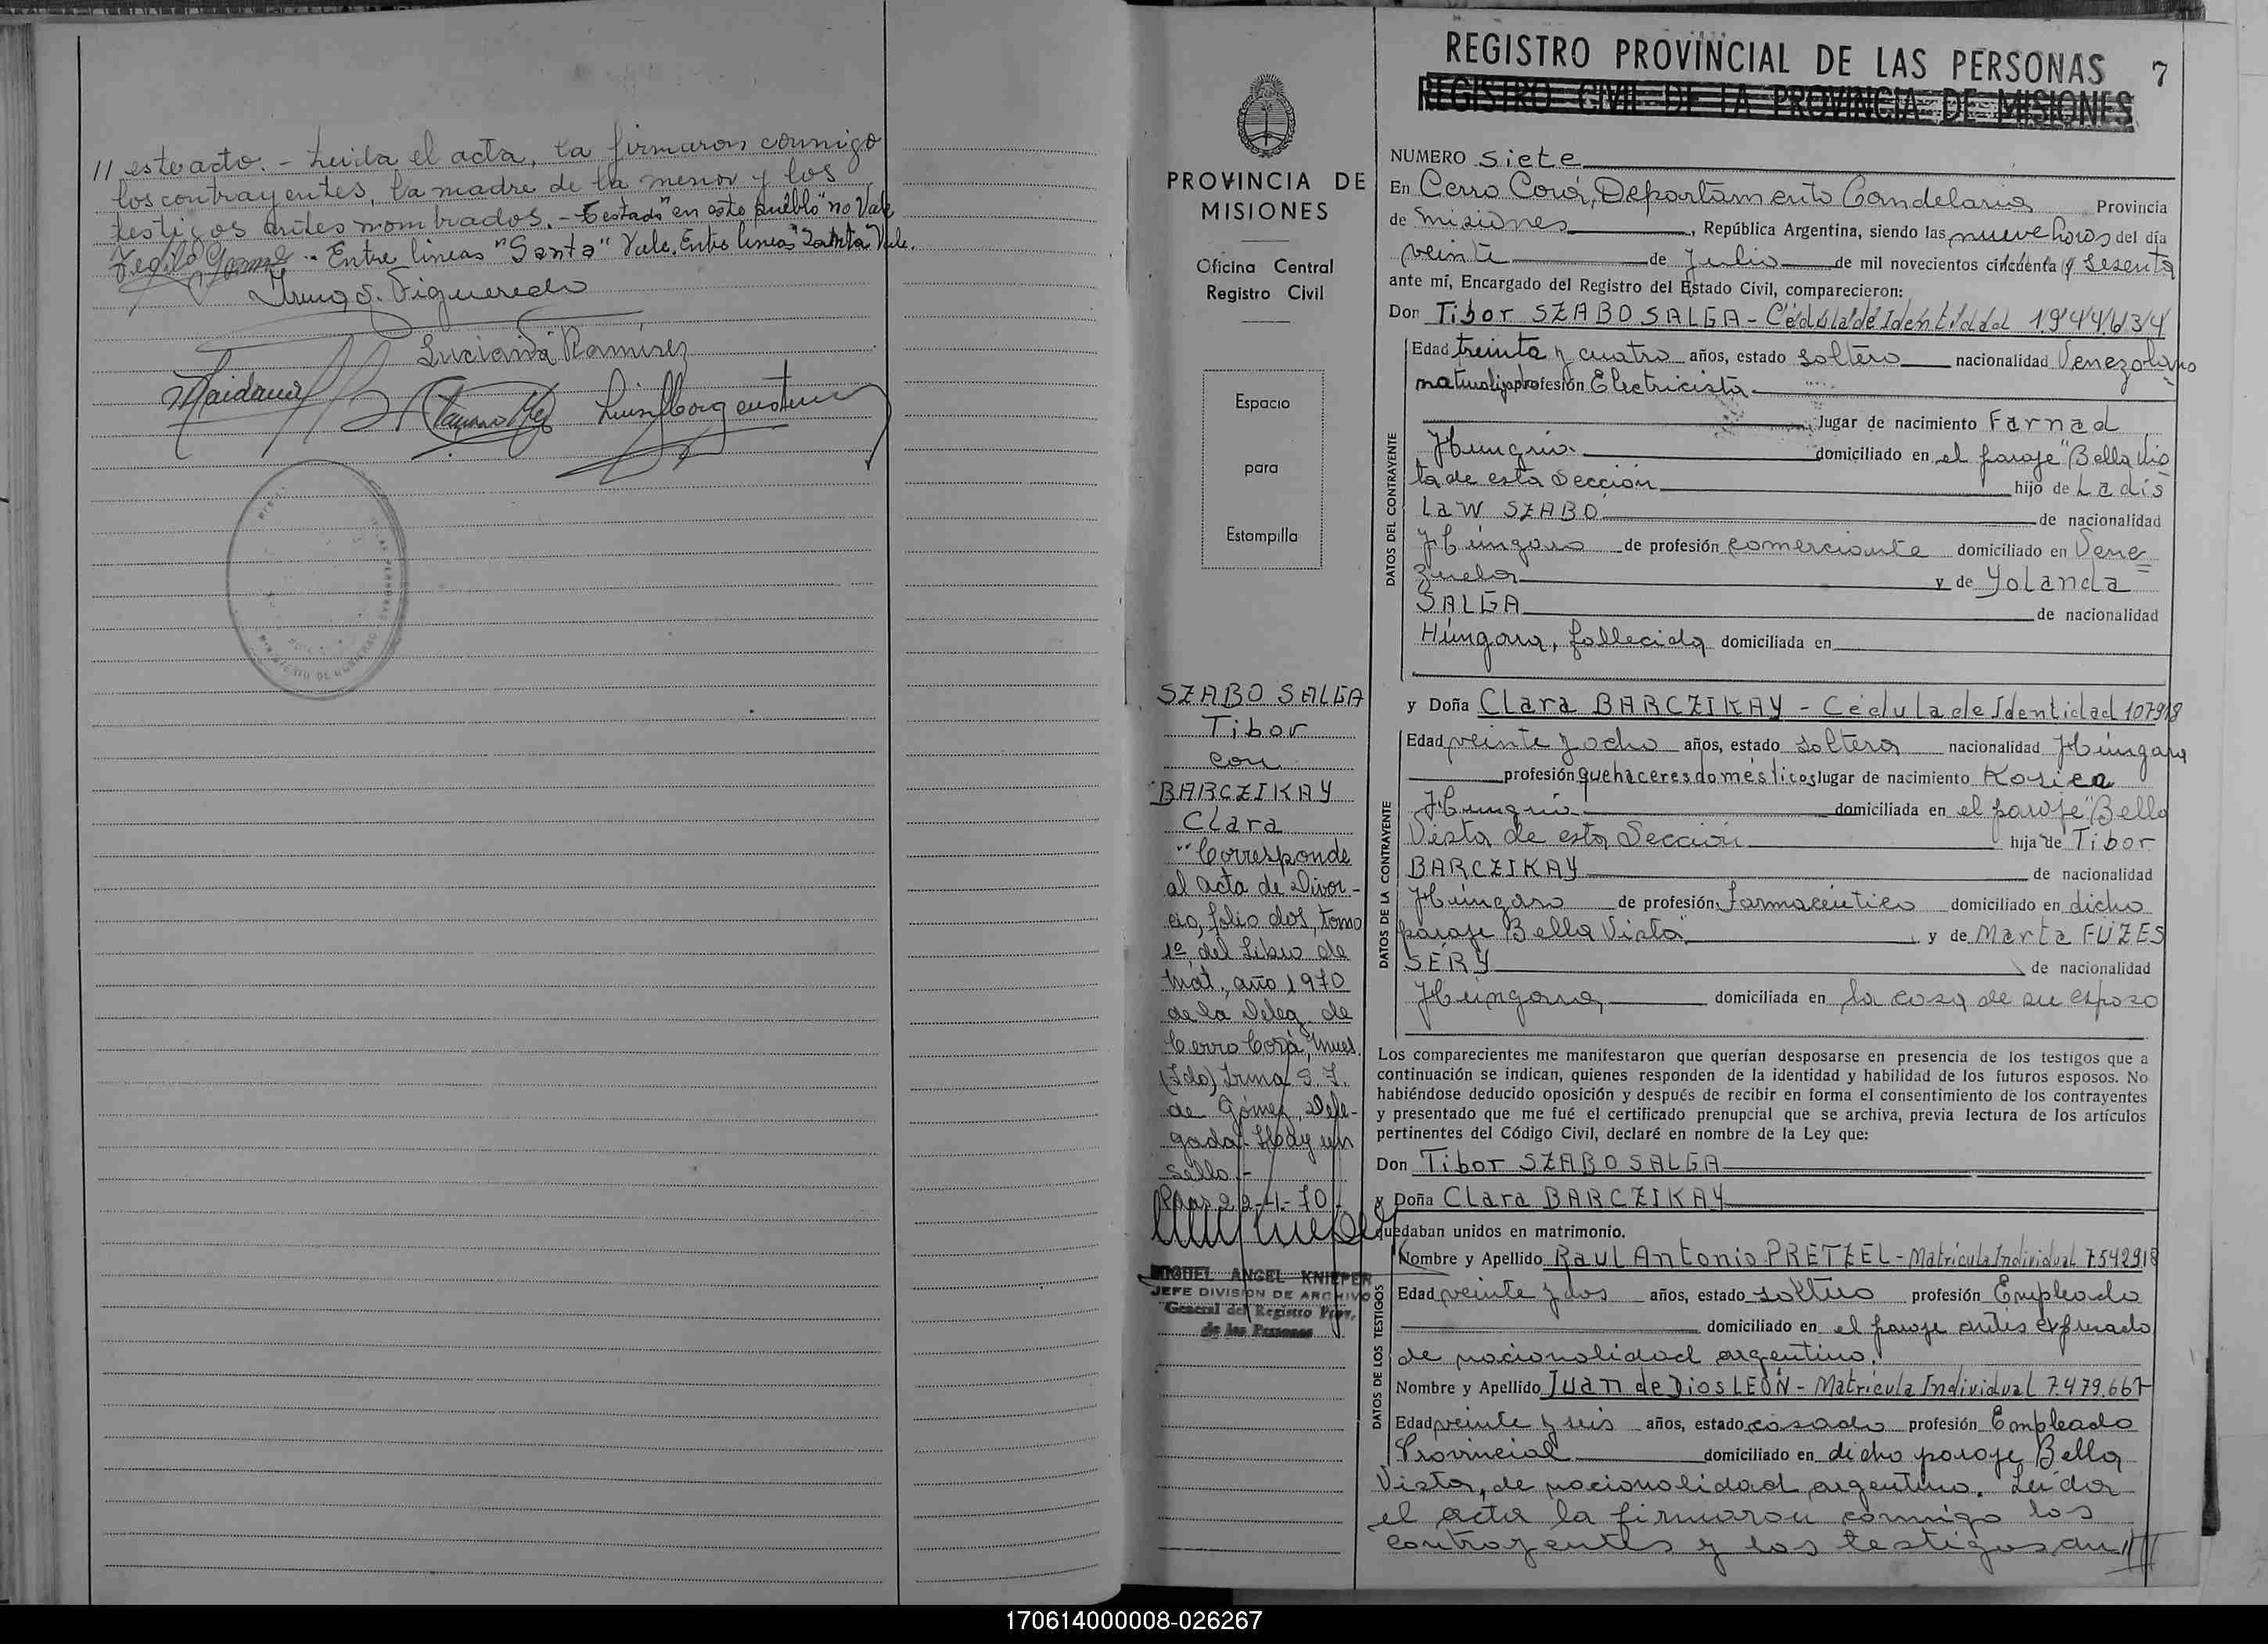 // este acto. - Leida el acta, la firmaron conmigo
los contrayentes, la madre de la menor y los
testigos antes nombrados. - Testado "en este pueblo" no Vale
- Entre lineas "Santa" Vale. Entre lineas Vale.
Irma S. Figueredo
Luciana Ramirez
Maidana
REGISTRO PROVINCIAL DE LAS PERSONAS 7
REGISTRO CIVIL DE LA PROVINCIA DE MISIONES
PROVINCIA DE
MISIONES
Oficina Central
Registro Civil
Espacio
para
Estampilla
SZABO SALGA
Tibor
con
BARCZIKAY
Clara
"Corresponde
al acta de Divor-
cio, folio dos, tomo
1º, del Libro de
Mat., año 1970
de la Deleg. de
Cerro Corá, Mnes.
(Fdo) Irma S. F.
de Gómez, Dele-
gada. Hay un
Sello.-
Pdas, 22-4-70
MIGUEL ANGEL KNIEPER
JEFE DIVISION DE ARCHIVO
General del Registro Prov.
de las Personas
NUMERO siete
En Cerro Corá, Departamento Candelaria Provincia
de Misiones, República Argentina, siendo las nueve horas del día
veinte de Julio de mil novecientos cincuenta y sesenta
ante mí, Encargado del Registro del Estado Civil, comparecieron:
Don Tibor SZABO SALGA - Cédula de Identidad 1944634
DATOS DEL CONTRAYENTE
Edad treinta y cuatro años, estado soltero nacionalidad Venezolano
naturaliz profesión Electricista
lugar de nacimiento Farnad
Hungría domiciliado en el paraje "Bella Vis
ta de esta Sección hijo de Ladis
Law SZABO de nacionalidad
Húngaro de profesión comerciante domiciliado en Vene
zuela y de Yolanda
SALGA de nacionalidad
Húngara, fallecida domiciliada en
y Doña Clara BARCZIKAY - Cédula de Identidad 107918
DATOS DE LA CONTRAYENTE
Edad veinte y ocho años, estado soltera nacionalidad Húngara
profesión quehaceres domésticos lugar de nacimiento Kosice
Hungría domiciliada en el paraje "Bella
Vista de esta Sección hija de Tibor
BARCZIKAY de nacionalidad
Húngaro de profesión Farmacéutico domiciliado en dicho
paraje Bella Vista" y de Marta FÜZES
SÉRY de nacionalidad
Húngara, domiciliada en la casa de su esposo
Los comparecientes me manifestaron que querían desposarse en presencia de los testigos que a
continuación se indican, quienes responden de la identidad y habilidad de los futuros esposos. No
habiéndose deducido oposición y después de recibir en forma el consentimiento de los contrayentes
y presentado que me fué el certificado prenupcial que se archiva, previa lectura de los artículos
pertinentes del Código Civil, declaré en nombre de la Ley que:
Don Tibor SZABO SALGA
y Doña Clara BARCZIKAY
quedaban unidos en matrimonio.
DATOS DE LOS TESTIGOS
Nombre y Apellido Raul Antonio PRETZEL - Matrícula Individual 7.542.918
Edad veinte y dos años, estado soltero profesión Empleado
domiciliado en el paraje antes expresado
de nacionalidad argentino.
Nombre y Apellido Juan de Dios LEÓN - Matrícula Individual 7.479.667
Edad veinte y seis años, estado casado profesión Empleado
Provincial domiciliado en dicho paraje Bella
Vista, de nacionalidad argentino. Leída
el acta la firmaron conmigo los
contrayentes y los testigos an//
170614000008-026267